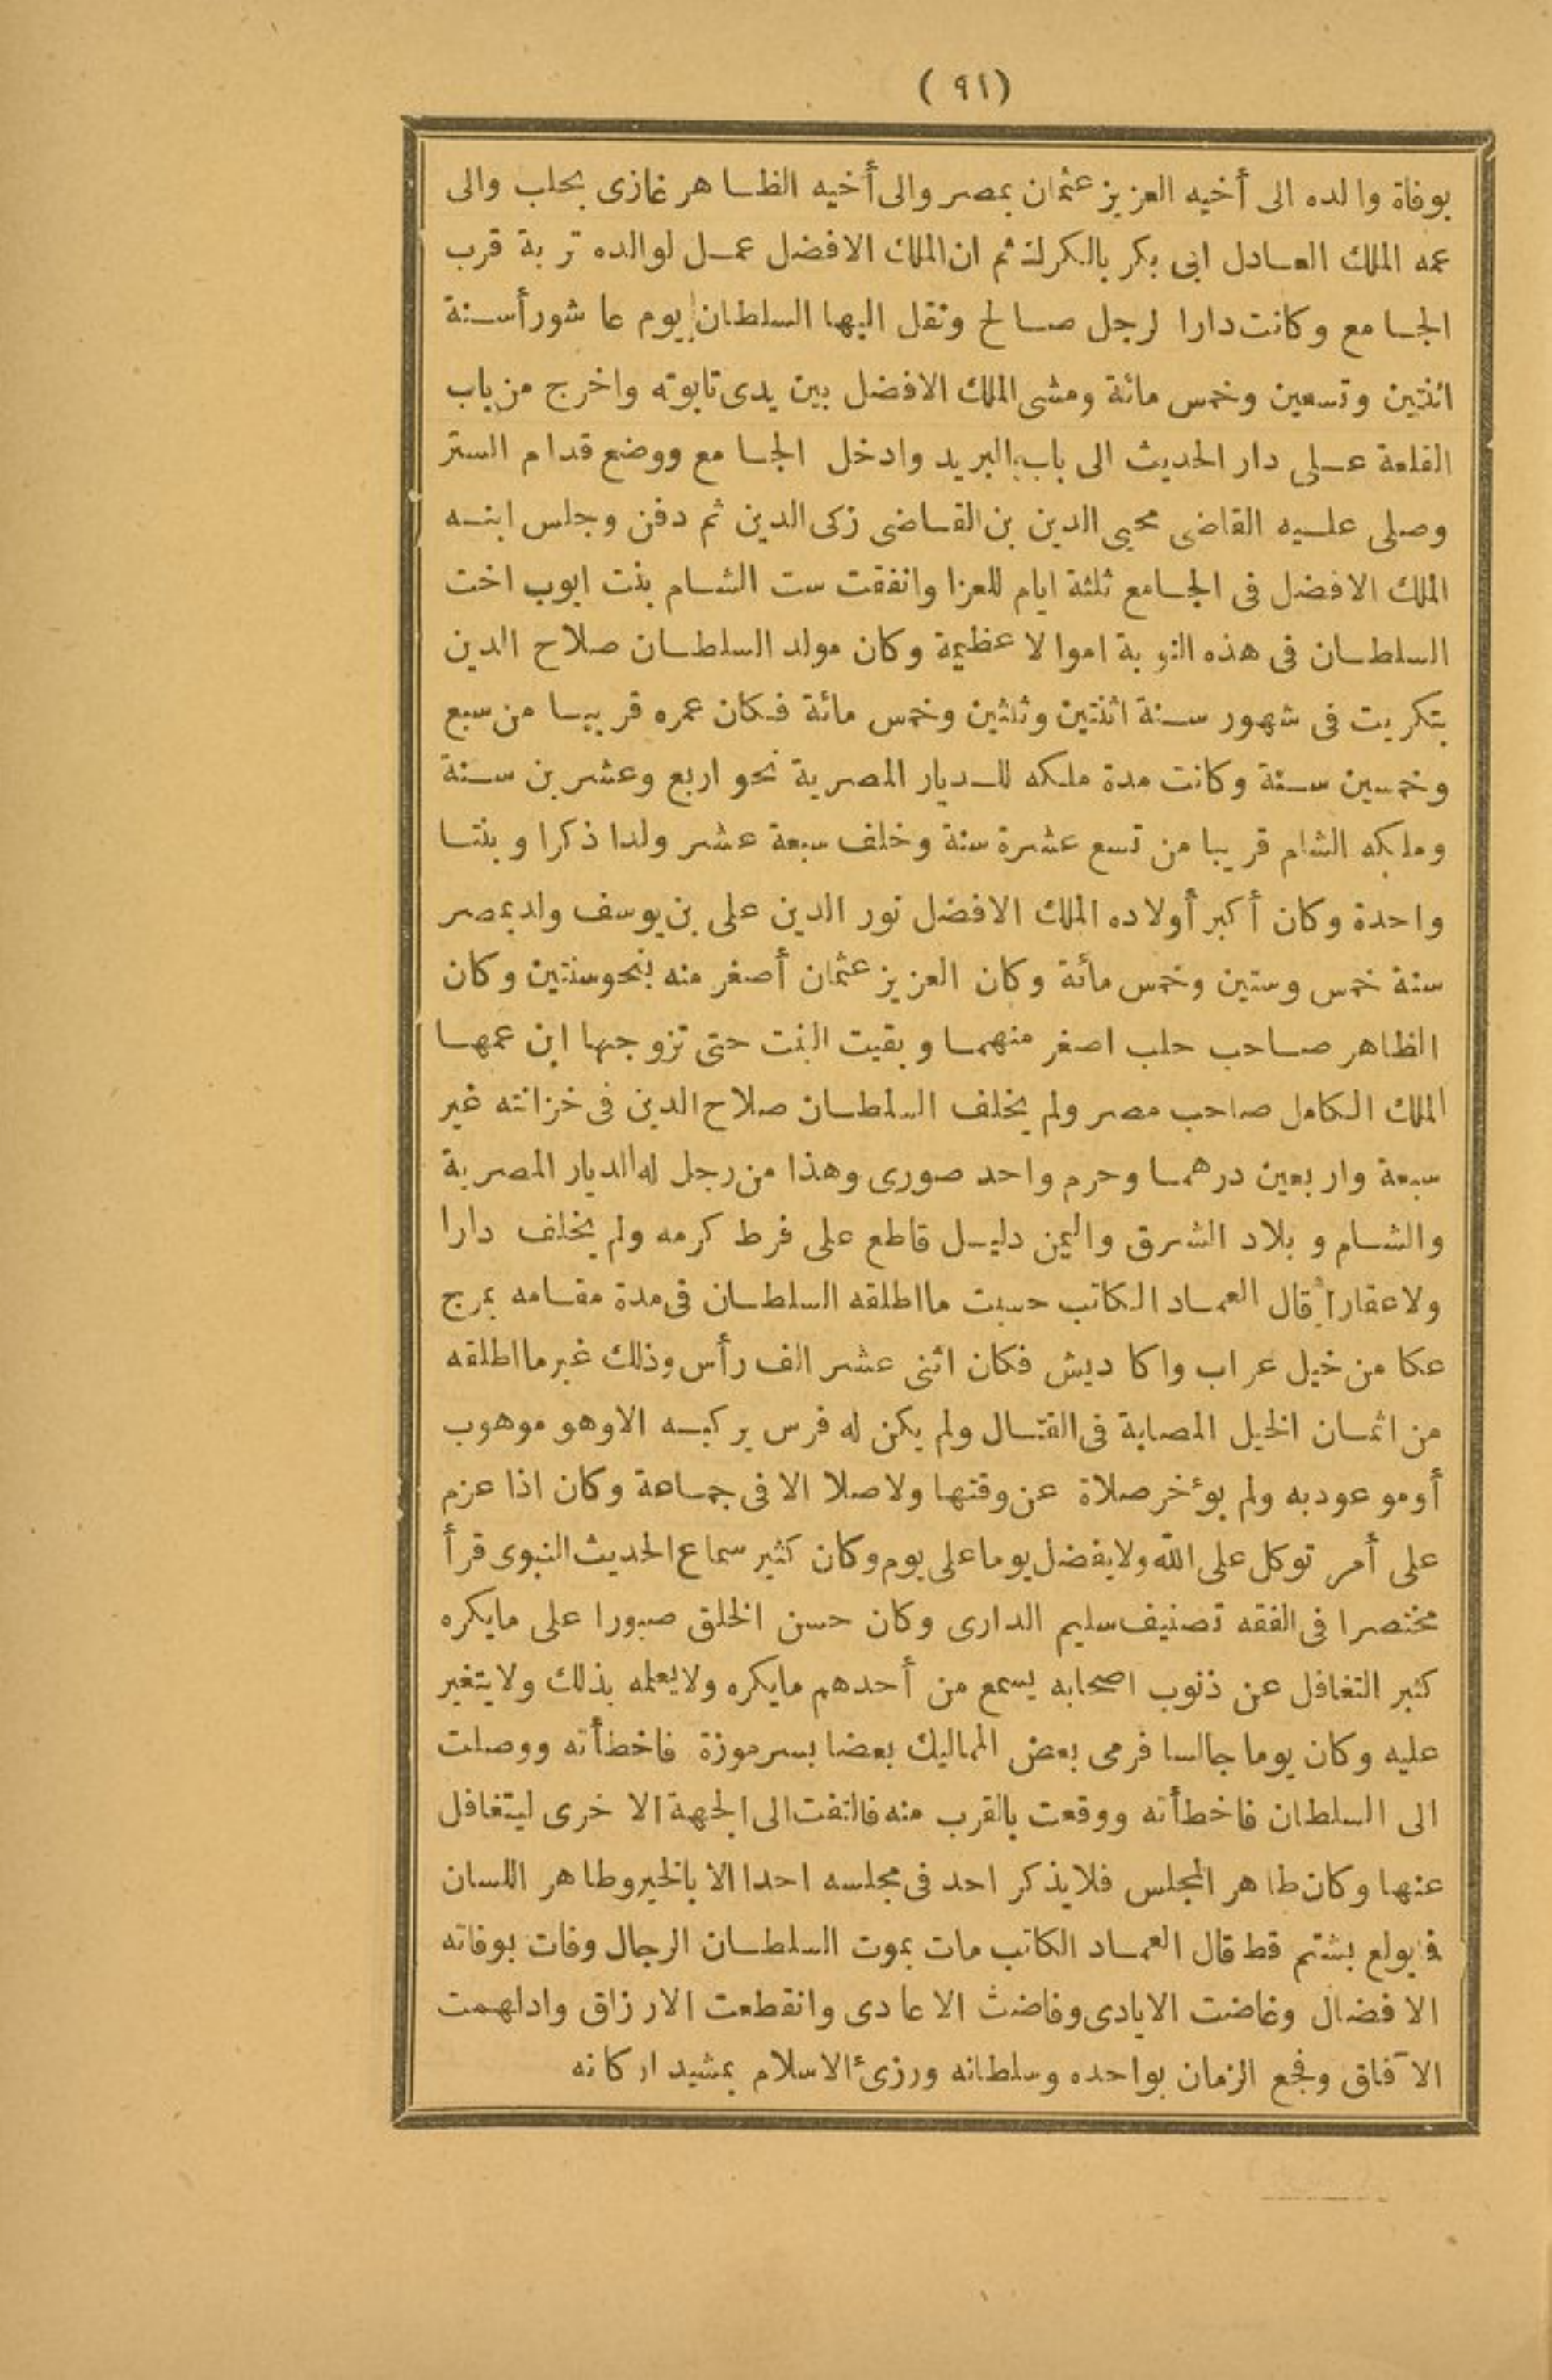 (٩١)
بوفاة والده الى أخيه العزيز عثمان بمصر والى أخيه الظاهر غازى بحلب والى
عمه الملك العادل ابى بكر بالكرك ثم ان الملك الافضل عمل لوالده تربة قرب
الجامع وكانت دارا لرجل صالح ونقل اليها السلطان يوم عاشورأ سنة
اثنتين وتسعين وخمس مائة ومشى الملك الافضل بين يدى تابوته واخرج من باب
القلعة على دار الحديث الى باب البريد وادخل الجامع ووضع قدام الستر
وصلى عليه القاضى محيى الدين بن القاضى زكى الدين ثم دفن وجلس ابنه
الملك الافضل فى الجامع ثلثة ايام للعزا وانفقت ست الشام بنت ايوب اخت
السلطان فى هذه النوبة اموالا عظيمة وكان مولد السلطان صلاح الدين
بتكريت فى شهور سنة اثنتين وثلثين وخمس مائة فكان عمره قريبا من سبع
وخمسين سنة وكانت مدة ملكه للديار المصرية نحو اربع وعشرين سنة
وملكه الشام قريبا من تسع عشرة سنة وخلف سبعة عشر ولدا ذكرا وبنتا
واحدة وكان أكبر أولاده الملك الافضل نور الدين على بن يوسف ولد بمصر
سنة خمس وستين وخمس مائة وكان العزيز عثمان أصغر منه بنحو سنتين وكان
الظاهر صاحب حلب اصغر منهما وبقيت البنت حتى تزوجها ابن عمها
الملك الكامل صاحب مصر ولم يخلف السلطان صلاح الدين فى خزانته غير
سبعة واربعين درهما وحرم واحد صورى وهذا من رجل له الديار المصرية
والشام وبلاد الشرق واليمن دليل قاطع على فرط كرمه ولم يخلف دارا
ولا عقاراً قال العماد الكاتب حسبت ما اطلقه السلطان فى مدة مقامه بمرج
عكا من خيل عراب واكاديش فكان اثنى عشر الف رأس وذلك غير ما اطلقه
من اثمان الخيل المصابة فى القتال ولم يكن له فرس يركبه الا وهو موهوب
أو موعود به ولم يؤخر صلاة عن وقتها ولا صلا الا فى جماعة وكان اذا عزم
على أمر توكل على الله ولا يفضل يوما على يوم وكان كثير سماع الحديث النبوى قرأ
مختصرا فى الفقه تصنيف سليم الدارى وكان حسن الخلق صبورا على ما يكره
كثير التغافل عن ذنوب اصحابه يسمع من أحدهم ما يكره ولا يعلمه بذلك ولا يتغير
عليه وكان يوما جالسا فرمى بعض المماليك بعضا بسرموزة فاخطأته ووصلت
الى السلطان فاخطأته ووقعت بالقرب منه فالتفت الى الجهة الاخرى ليتغافل
عنها وكان طاهر المجلس فلا يذكر احد فى مجلسه احدا الا بالخير وطاهر اللسان
فا يولع بشتم قط قال العماد الكاتب مات بموت السلطان الرجال وفات بوفاته
الافضال وغاضت الايادى وفاضت الاعادى وانقطعت الارزاق وادلهمت
الآفاق وفجع الزمان بواحده وسلطانه ورزئ الاسلام بمشيد اركانه